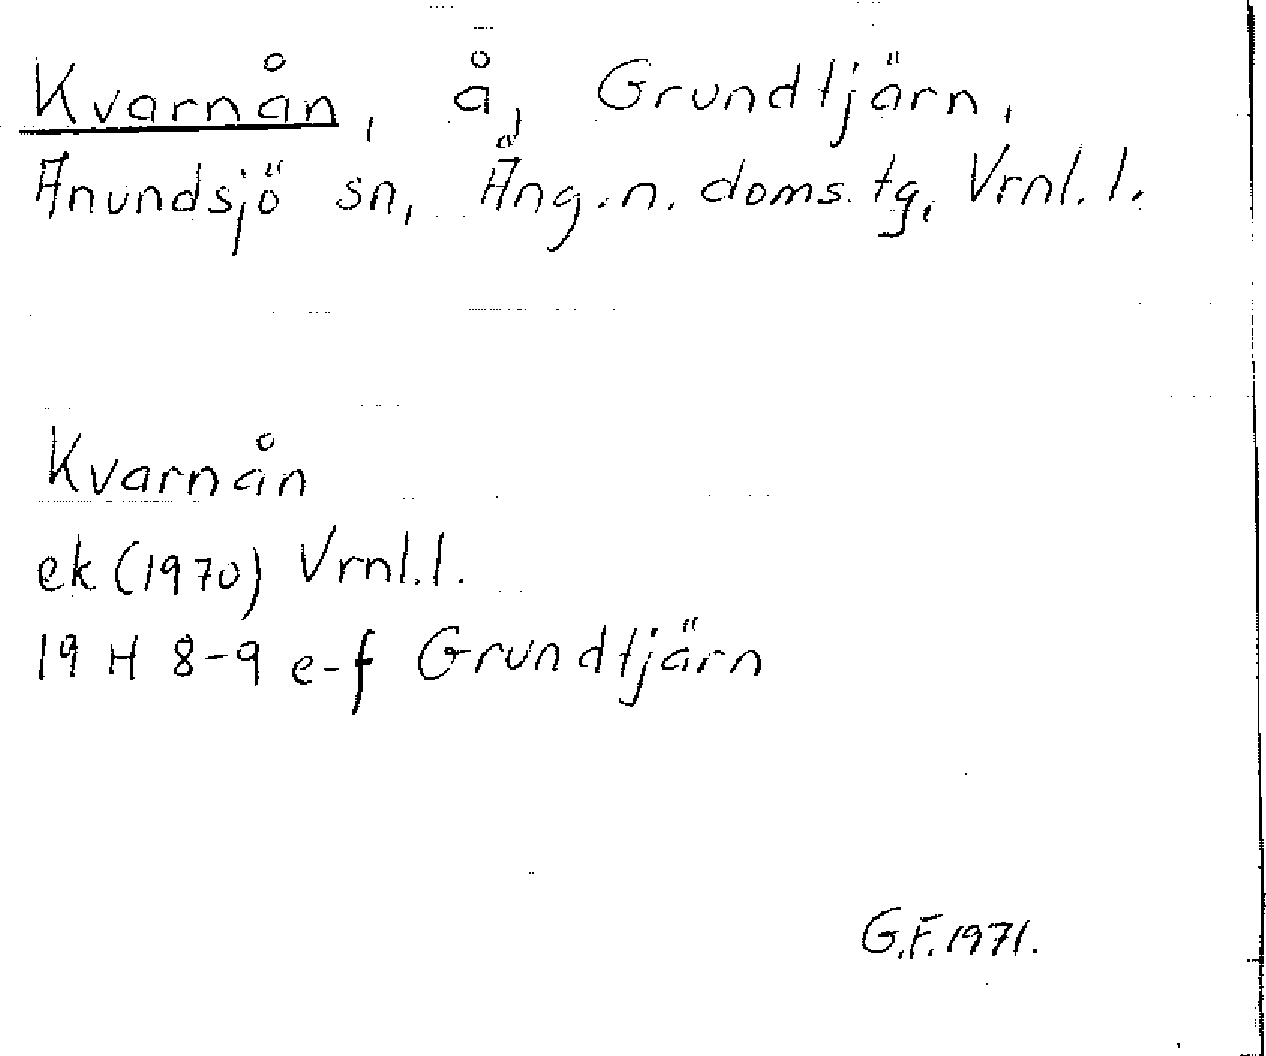 Kvarnån, å, Grundtjärn,
Anundsjö sn, Ång.n. doms.tg, Vrnl.l.
Kvarnån
ek (1970) Vrnl.l.
19 H 8-9 e-f Grundtjärn
G.F. 1971.